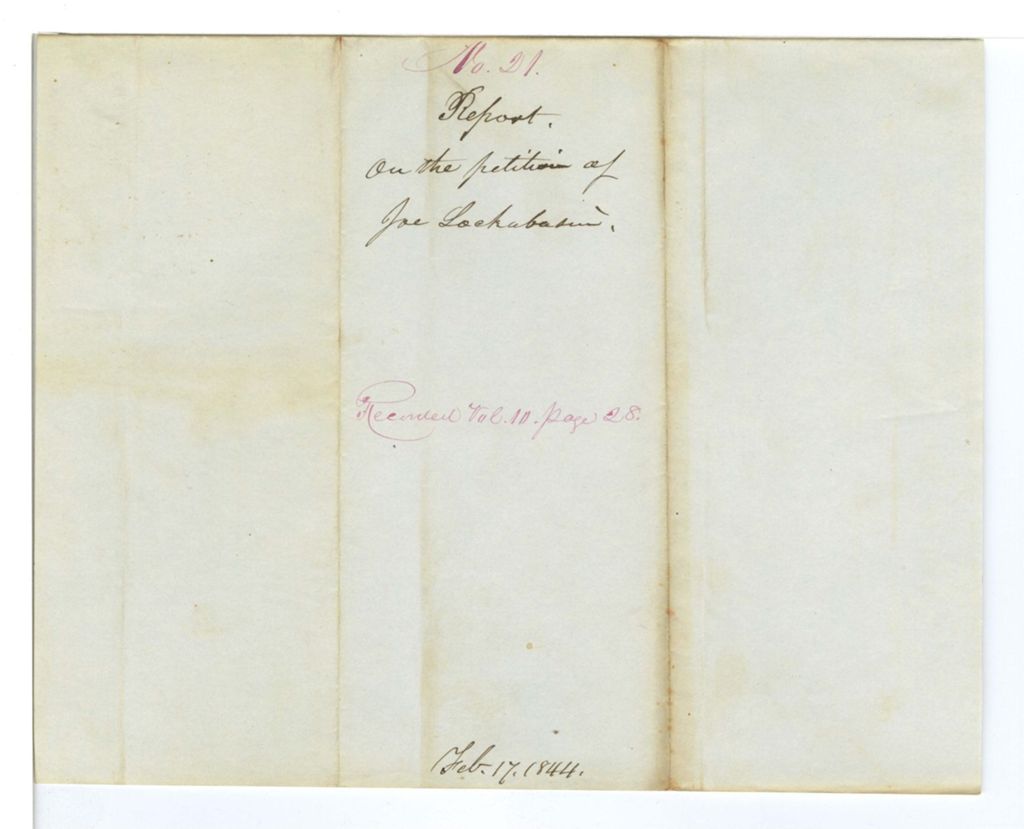 No. 21.
Report.
On the petition of
Joe Lockabasin.
Recorded Vol. 10. page 28.
Feb. 17. 1844.